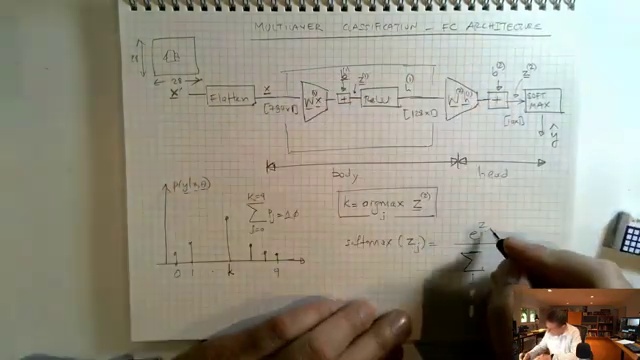 MULTILAYER CLASSIFICATION - FC ARCHITECTURE
28
28
x
Flatten
x
[784x1]
W x
b(1)
+
z(1)
ReLU
h(1)
[128x1]
W h(1)
b(2)
+
z(2)
[10x1]
SOFT
MAX
ŷ
body
head
p(y|x,θ)
K=9
Σ Pj = 1.0
j=0
0 1 . k 9
k = argmax z(2)
j
softmax (zj) = e^zj
Σ